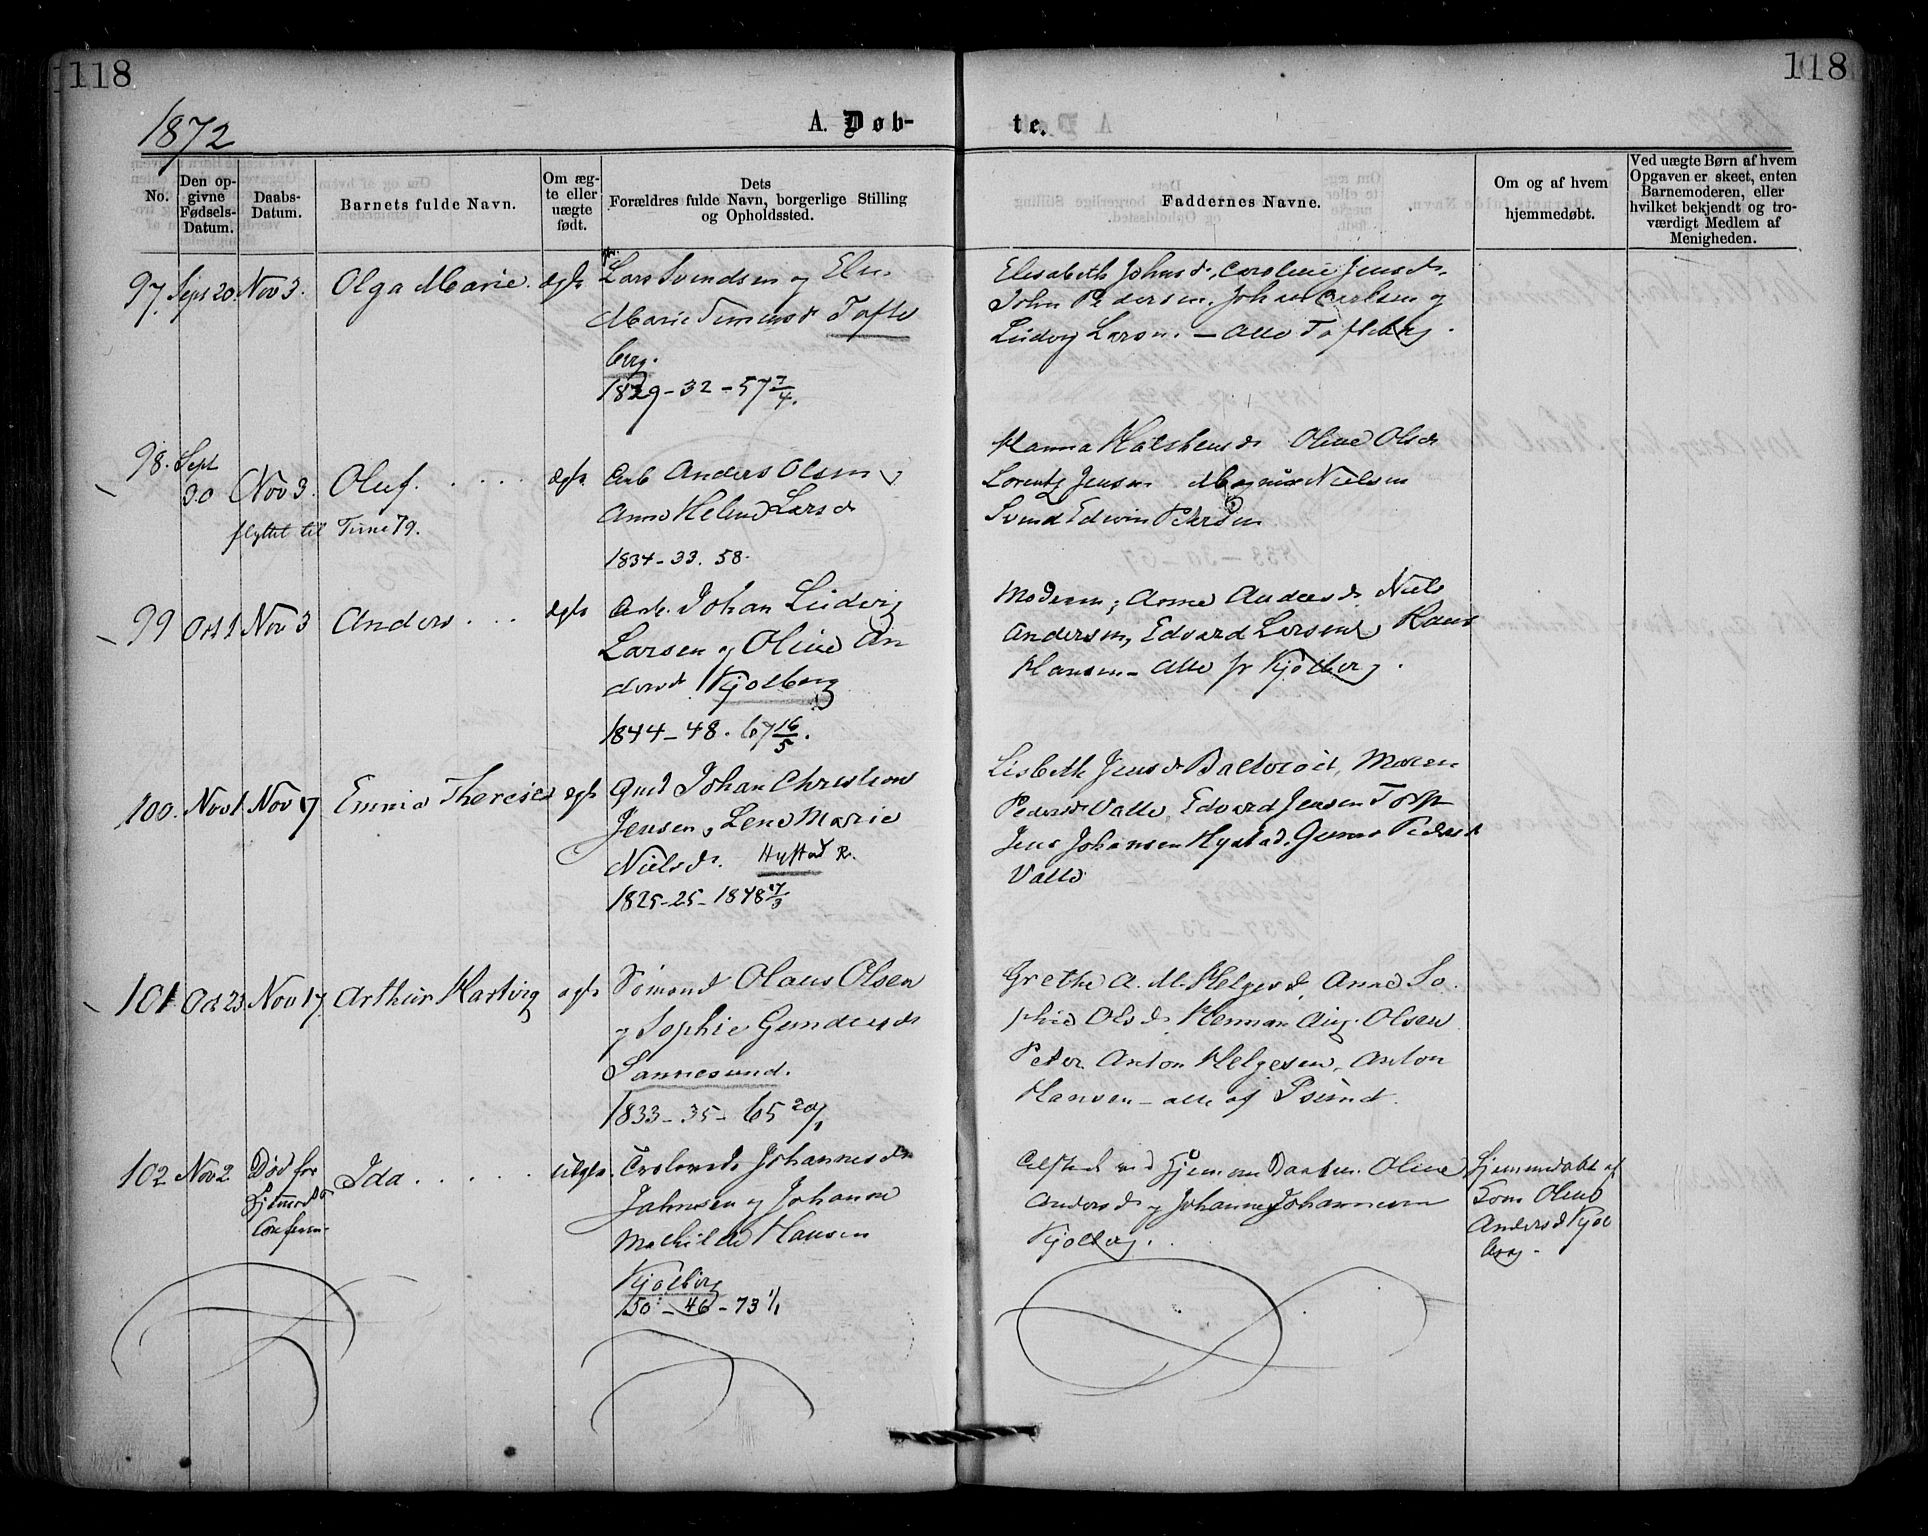 118
118
1872
A. Døb-
te.
No.
Den op-
givne
Fødsels-
Datum.
Daabs-
Datum.
Barnets fulde Navn.
Om æg-
te eller
uægte
født.
Dets
Forældres fulde Navn, borgerlige Stilling
og Opholdssted.
Faddernes Navne.
Om og af hvem
hjemmedøbt.
Ved uægte Børn af hvem
Opgaven er skeet, enten
Barnemoderen, eller
hvilket bekjendt og tro-
værdigt Medlem af
Menigheden.
97. Sept 20. Nov 3. Olga Marie. ægte Lars Svendsen og Else
Marie Simensd Tofte
berg.
1829-32-57 7/4.
Elisabeth Johnsd, Caroline Jensd.
John Pedersen, Johan Carlsen og
Ludvig Larsen. - Alle Tofteberg.
98. Sept
30 Nov 3. Oluf. ægte Arb Anders Olsen og
flyttet til Tune 79.
Anne Helene Larsd
1834-33. 58.
Hanna Halstensd Oline Olsd
Lorentz Jensen Magnus Nielsen
Svend Edwin Petersen
99 Oct 1 Nov 3 Anders ægte Arb. Johan Ludvig
Larsen og Oline An
dersd Kjølberg
1844-48. 67 16/5.
Moderen, Anne Andersd, Niels
Andersen, Edvard Larsen, Hans
Hansen - Alle fr Kjølberg.
100. Nov 1 Nov 17 Emma Therese ægte Gmd Johan Christian
Jensen, Lene Marie
Nielsd. Hystad R.
1825-25-1848 7/3
Lisbeth Jensd Baltvoit, Maren
Pedersd Valle, Edvard Jensen Torp
Jens Johansen Hystad, Gunnar Pedersd
Valle
101 Oct 23 Nov 17 Arthur Hartvig ægte Sømand Olaus Olsen
og Sophie Gundersd
Sannesund.
1833-35-65 20/1
Grethe A. M. Helgesd, Anne So
phie Olsd Herman Aug. Olsen
Peter Anton Helgesen, Anton
Hansen - alle af Ssund.
102 Nov 2 Død før Ida uægte. Johannes
Johnsen og Johanne
Mathilde Hansen
Kjølberg
50-46-73 1/1
ved Hjemmedaaben. Oline
Andersd og Johannes Johannesen
Kjølberg.
Hjemmedøbt af
Kone Oline
Andersd Kjøl
berg.